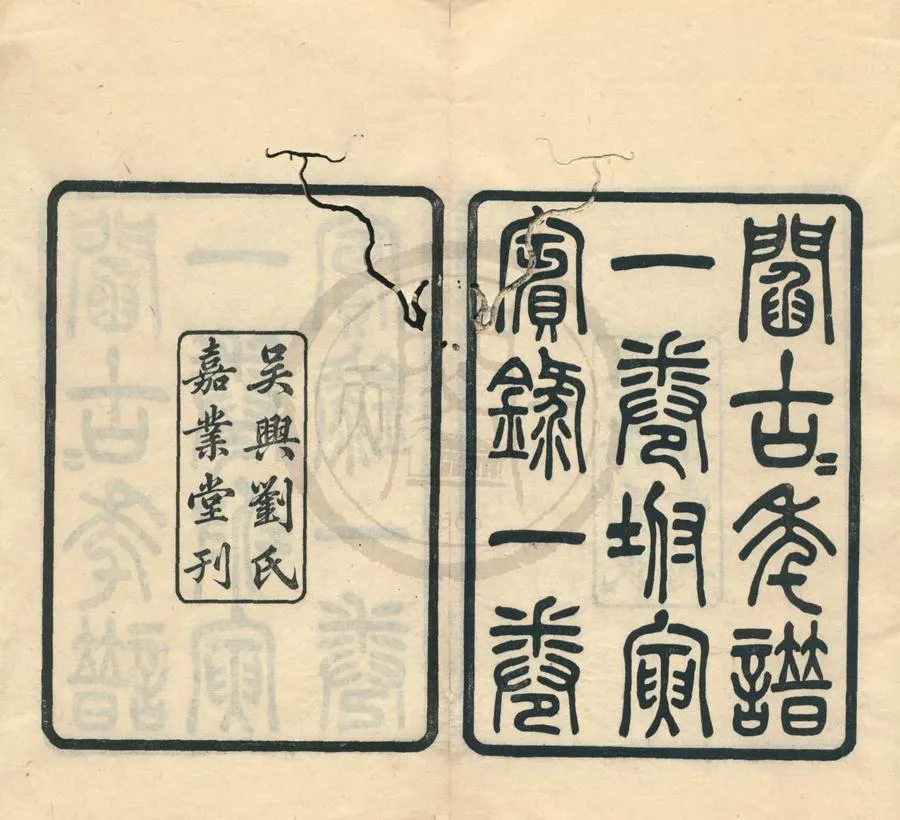 閻古〻年譜
一卷坿寅
賓錄一卷
吴興劉氏
嘉業堂刊